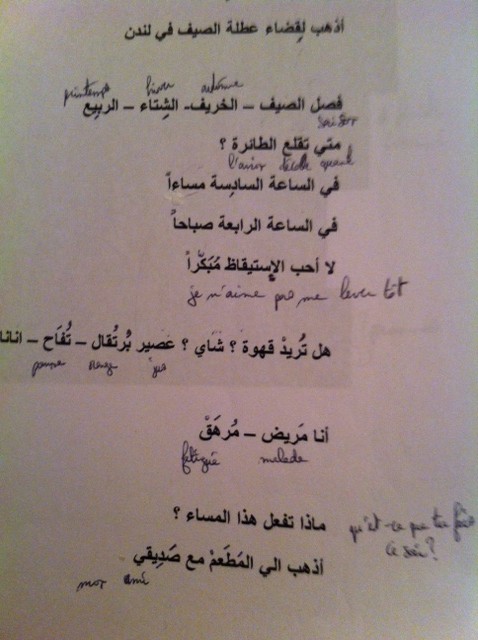 أذهب لِقضاء عطلة الصيف في لندن
printemps hiver automne
فصل الصيف – الخريف- الشِتاء – الربيع
saison
متي تقلع الطائرة ؟
l'avion décolle quand
في الساعة السادِسة مساءاً
في الساعة الرابعة صباحاً
لا أحب الإستيقاظ مُبَكّراً
je n'aime pas me lever tôt
هل تُريدْ قهوة ؟ شَاي ؟ عَصير بُرتُقال – تُفَاح – انانا
pomme orange jus
أنا مَريض – مُرهَقْ
fatigué malade
ماذا تفعل هذا المساء ؟
qu'est-ce que tu fais
ce soir?
أذهب الي المَطعَمْ مع صَدِيقي
mon ami